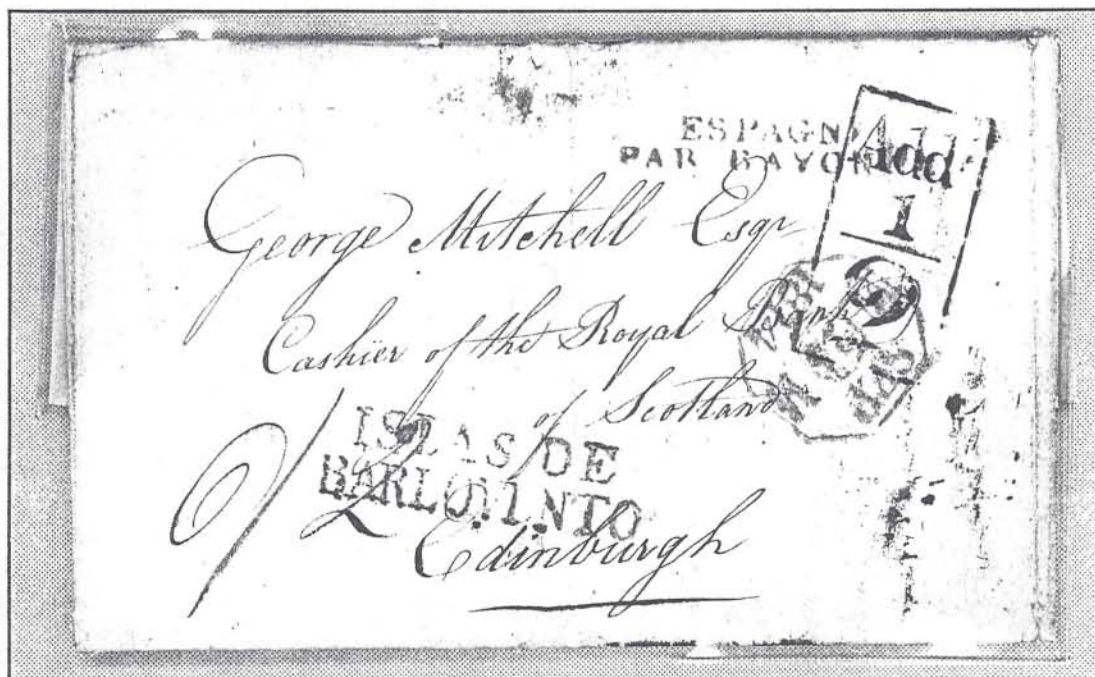 ESPAGN
PAR BAYON
Add
1
George Mitchell Esqr
Cashier of the Royal Bank
of Scotland
ISLAS DE
BARLOVINTO
Edinburgh